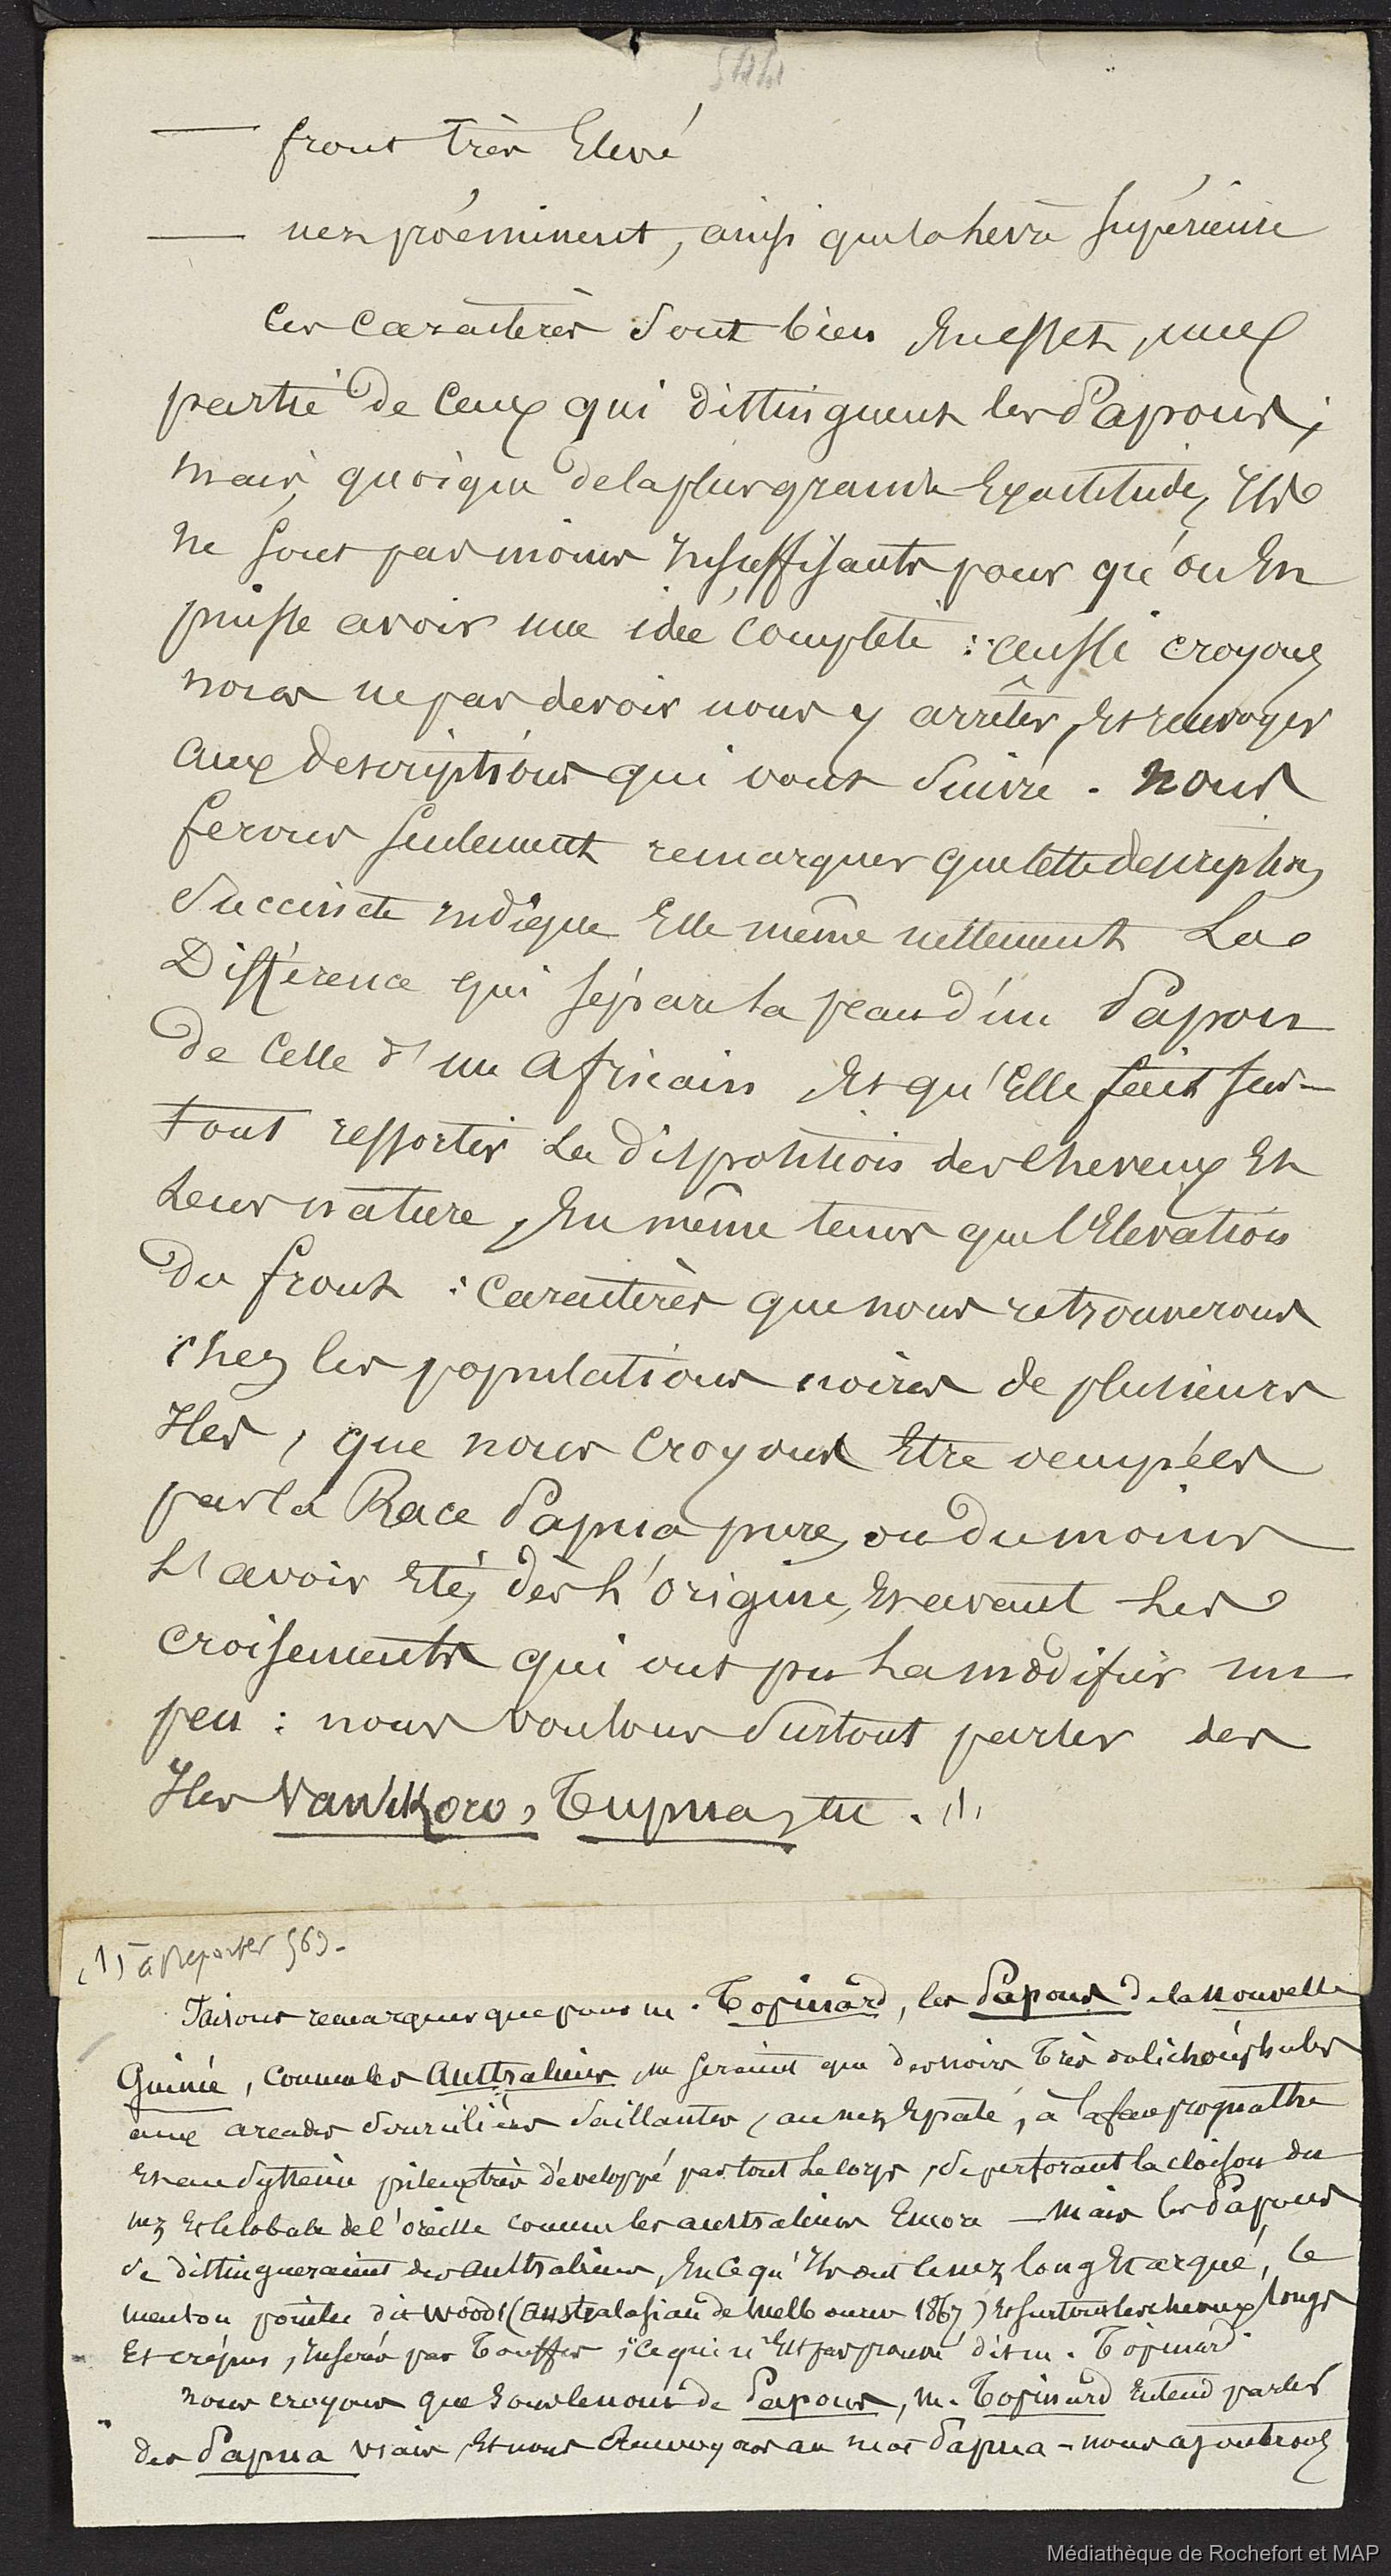 544
— front très Elevé
— nez proéminent, ainsi que la lèvre supérieure
Ces caractères sont bien, En effet, une
partie de Ceux qui distinguent les Papous ;
mais, quoique de la plus grande Exactitude, Ils
ne sont pas moins Insuffisants pour qu'on En
puisse avoir une idée complète : aussi croyons
nous ne pas devoir nous y arrêter, Et renvoyer
aux descriptions qui vont suivre. Nous
ferons seulement remarquer que cette description
succincte Indique Elle même nettement La
Différence qui sépare la peau d'un Papou
de Celle d'un Africain, Et qu'Elle fait sur-
tout ressortir La disposition des Cheveux Et
Leur nature, En même tems que l'Elévation
du front : Caractères que nous retrouverons
chez les populations noires de plusieurs
Iles, que nous croyons Etre occupées
par la Race Papua pure, ou du moins
L'avoir Eté, dès L'origine, Et avant Les
croisements qui ont pu La modifier un
peu : nous voulons surtout parler des
Iles Vanikoro, Tupua, etc. (1)
(1) à Reporter 569.
Faisons remarquer que pour M. Topinard, les Papous de la Nouvelle
Guinée, comme les Australiens, ne seraient que des noirs Très dolichocéphales
aux arcades sourcilières saillantes, au nez Epaté, à la face prognathe
Et au système pileux très développé par tout Le corps, se perforant la cloison du
nez Et le lobule de l'oreille comme les australiens Encore — Mais les Papous
se distingueraient des Australiens, En ce qu'Ils ont le nez long Et arqué, le
menton pointu dit Woods (Australasian de Melbourne 1867) Et surtout les cheveux longs
Et crépus, Insérés par Touffes ; "Ce qui n'Est pas prouvé" dit M. Topinard.
nous croyons que sous le nom de Papous, M. Topinard Entend parler
des Papua vrais, Et nous Renvoyons au mot Papua - nous ajouterons
Médiathèque de Rochefort et MAP